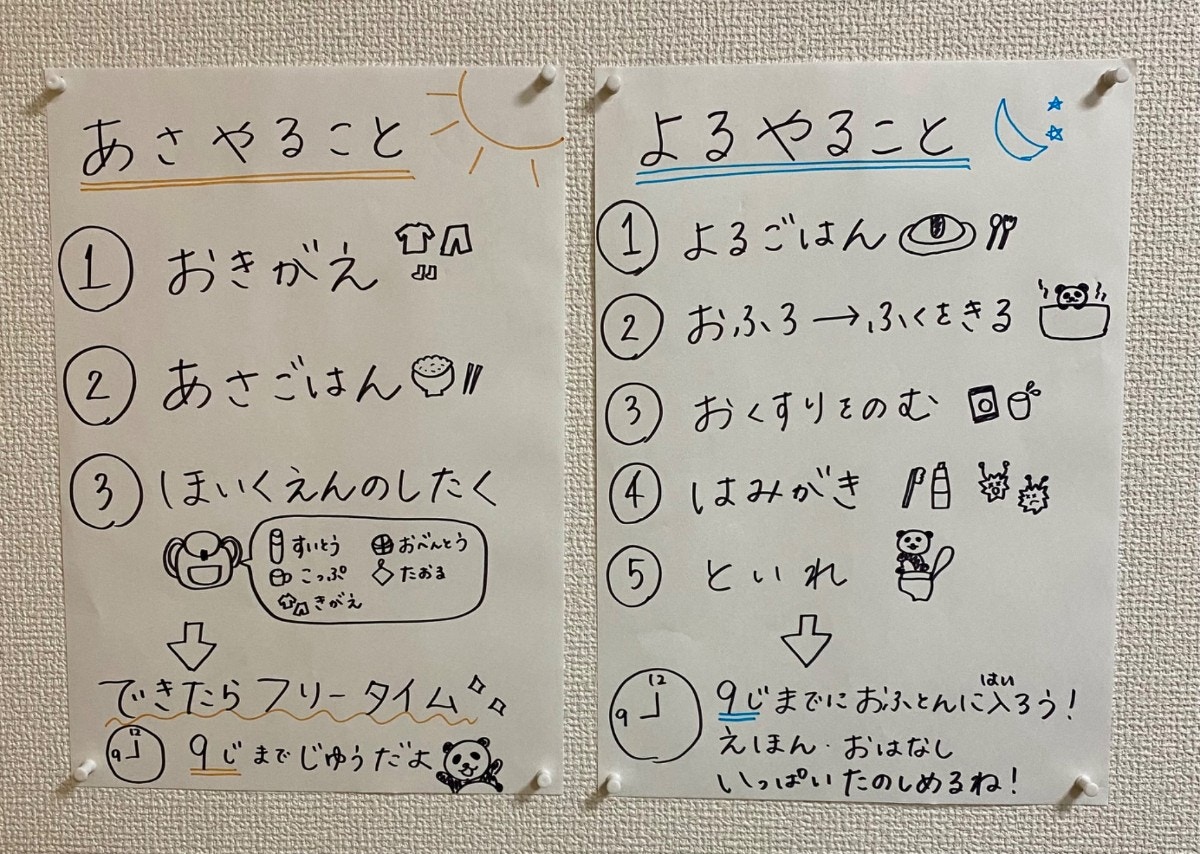 あさやること
① おきがえ
② あさごはん
③ ほいくえんのしたく
すいとう おべんとう
こっぷ たおる
きがえ
できたらフリータイム
12
9
9じまでじゆうだよ
よるやること
① よるごはん
② おふろ→ふくをきる
③ おくすりをのむ
④ はみがき
⑤ といれ
12
9
9じまでにおふとんに入ろう!
はい
えほん・おはなし
いっぱいたのしめるね!